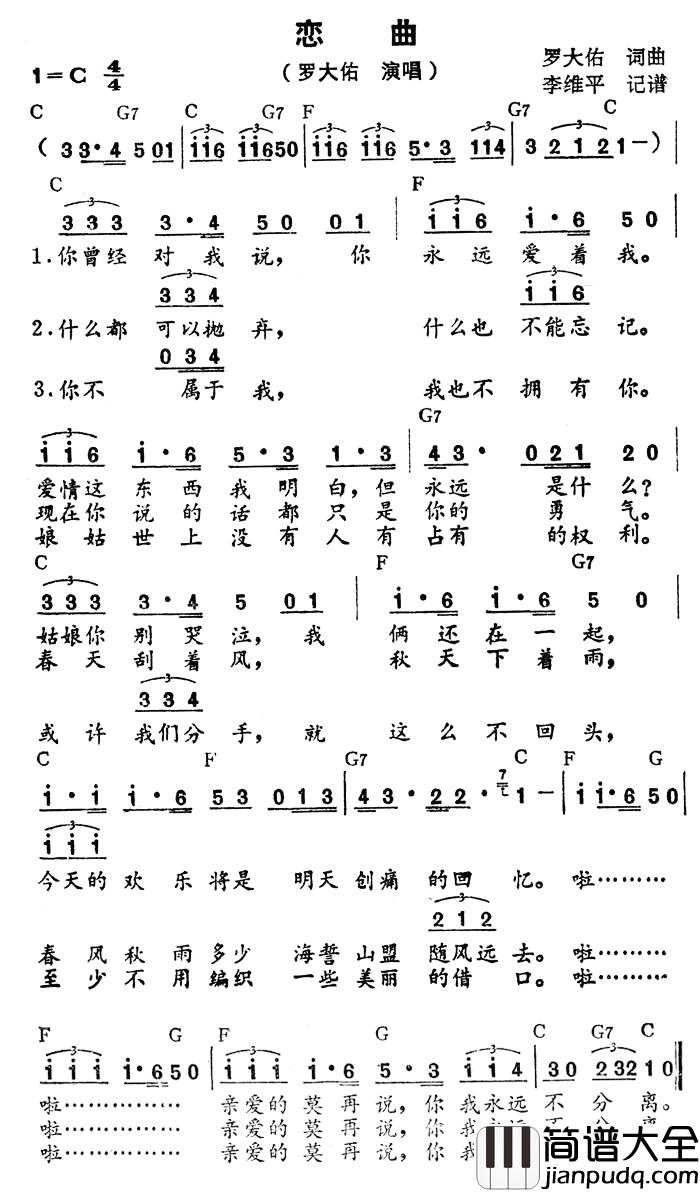 恋 曲
1=C 4/4
（罗大佑 演唱）
罗大佑 词曲
李维平 记谱
C G7 C G7 F G7 C
( 3 3·4 5 01 | i i 6 i i 6 5 0 | i i 6 i i 6 5·3 1 1 4 | 3 2 1 2 1 — )
C F
3 3 3 3·4 5 0 0 1 | i i 6 i·6 5 0
1.你曾经 对 我 说， 你 永 远 爱 着 我。
3 3 4 i i 6
2.什么都 可以抛 弃， 什么也 不能忘 记。
0 3 4
3.你不 属于 我， 我也不 拥 有 你。
G7
i i 6 i·6 5·3 1·3 | 4 3· 0 2 1 2 0
爱情这 东 西 我 明 白，但 永远 是什 么？
现在你 说 的 话 都 只 是 你的 勇 气。
娘 姑 世 上 没 有 人 有 占有 的权 利。
C F G7
3 3 3 3·4 5 0 1 | i·6 i·6 5 0
姑娘你 别 哭 泣， 我 俩 还 在 一 起，
春 天 刮 着 风， 秋 天 下 着 雨，
3 3 4
或 许 我们分 手， 就 这 么 不 回 头，
C F G7 C F G
i·i i·6 5 3 0 1 3 | 4 3· 2 2· 7 1 — | i i·6 5 0
i i i
今天的 欢 乐 将是 明天 创痛 的回 忆。 啦………
2 1 2
春 风 秋 雨 多少 海誓 山盟 随风远 去。 啦………
至 少 不 用 编织 一些 美丽 的借 口。 啦………
F G F G C G7 C
i i i i·6 5 0 | i i i i·6 5·3 i i i | 3 0 2 3 2 1 0
啦…………… 亲爱的 莫 再 说，你 我永远 不 分 离。
啦…………… 亲爱的 莫 再 说，你 我永远 不 分 离
啦…………… 亲爱的 莫 再 说，你 我
简谱大全
jianpudq.com